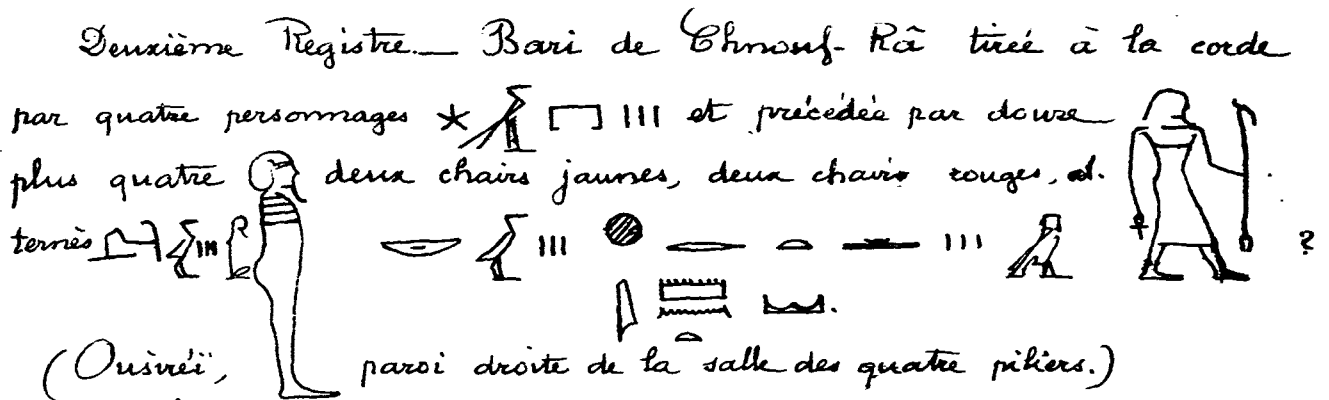 Deuxième Registre._ Bari de Chnouf-Râ tirée à la corde
par quatre personnages et précédée par douze
plus quatre deux chairs jaunes, deux chairs rouges, al.
ternés ?
(Ousiréï, paroi droite de la salle des quatre piliers.)